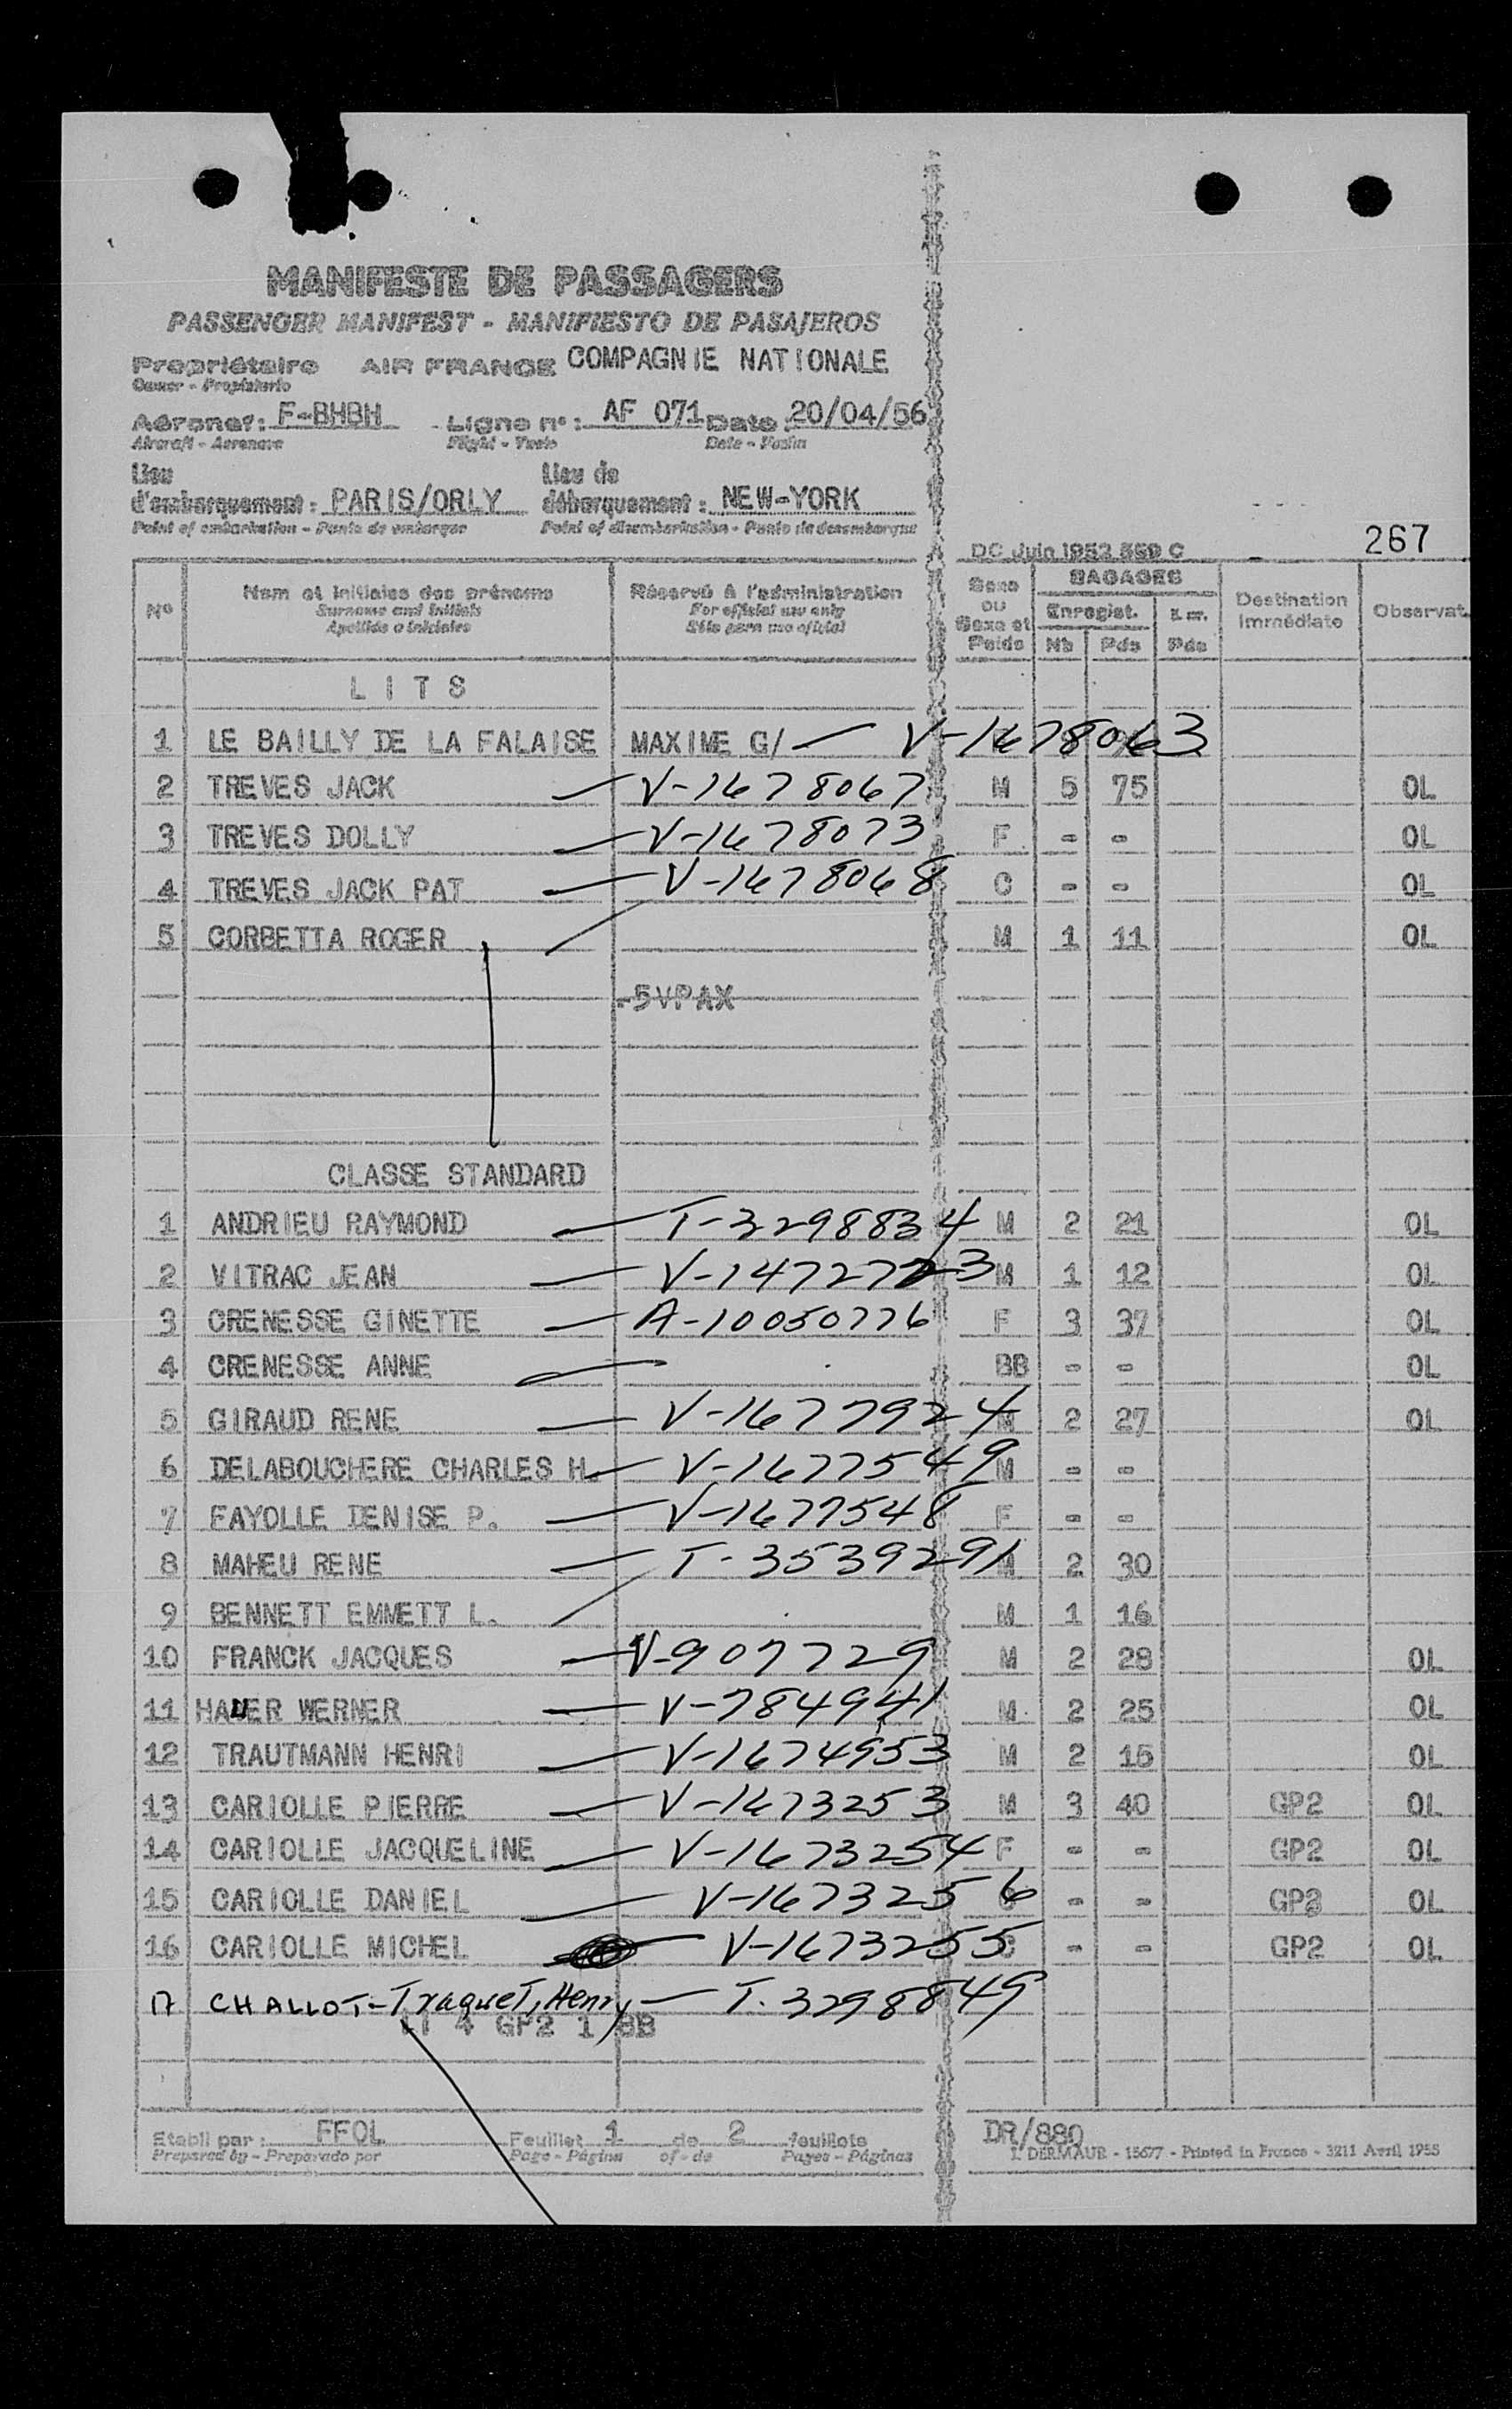 MANIFESTE DE PASSAGERS
PASSENGER MANIFEST - MANIFIESTO DE PASAJEROS
Propriétaire AIR FRANCE COMPAGNIE NATIONALE
Owner - Propietario
Aéronef: F-BHBH Ligne n°: AF 071 Date: 20/04/56
Aircraft - Aeronave Flight - Vuelo Date - Fecha
Lieu Lieu de
d'embarquement: PARIS/ORLY débarquement: NEW-YORK
Point of embarkation - Punto de embarque Point of disembarkation - Punto de desembarque
DC Juin 1952 569 C 267
N° Nom et initiales des prénoms Réservé à l'administration Sexe ou Sexe et Poids BAGAGES Destination Immédiate Observat.
Surname and Initials For official use only Enregist.
Apellido e iniciales Sólo para uso oficial Nb Pds Pds
LITS
1 LE BAILLY DE LA FALAISE MAXIME G/ — V-1678063
2 TREVES JACK — V-1678067 M 5 75 OL
3 TREVES DOLLY — V-1678073 F - - OL
4 TREVES JACK PAT — V-1678068 C - - OL
5 CORBETTA ROGER M 1 11 OL
-5VPAX
CLASSE STANDARD
1 ANDRIEU RAYMOND — T-3298834 M 2 21 OL
2 VITRAC JEAN — V-1472723 M 1 12 OL
3 CRENESSE GINETTE — A-10050776 F 3 37 OL
4 CRENESSE ANNE — BB - - OL
5 GIRAUD RENE — V-1677924 M 2 27 OL
6 DELABOUCHERE CHARLES H. — V-1677549 M - -
7 FAYOLLE DENISE P. — V-1677548 F - -
8 MAHEU RENE — T-3539291 M 2 30
9 BENNETT EMMETT L. M 1 16
10 FRANCK JACQUES — V-907729 M 2 28 OL
11 HAUER WERNER — V-784941 M 2 25 OL
12 TRAUTMANN HENRI — V-1674953 M 2 15 OL
13 CARIOLLE PIERRE — V-1673253 M 3 40 GP2 OL
14 CARIOLLE JACQUELINE — V-1673254 F - - GP2 OL
15 CARIOLLE DANIEL — V-1673256 C - - GP2 OL
16 CARIOLLE MICHEL — V-1673255 C - - GP2 OL
17 CHALLOT-Traquet, Henry — T-3298849
4 GP2 1 BB
Etabli par: FFOL Feuillet 1 de 2 feuillets DR/880
Prepared by - Preparado por Page - Página of - de Pages - Páginas L. DERMAUR - 15677 - Printed in France - 3211 Avril 1955